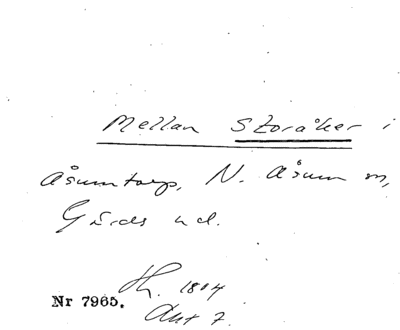 Mellan Storåker i
Åsumtorp, N. Åsum sn,
Gärds hd.
Sk. 1804
Akt 7
Nr 7965.